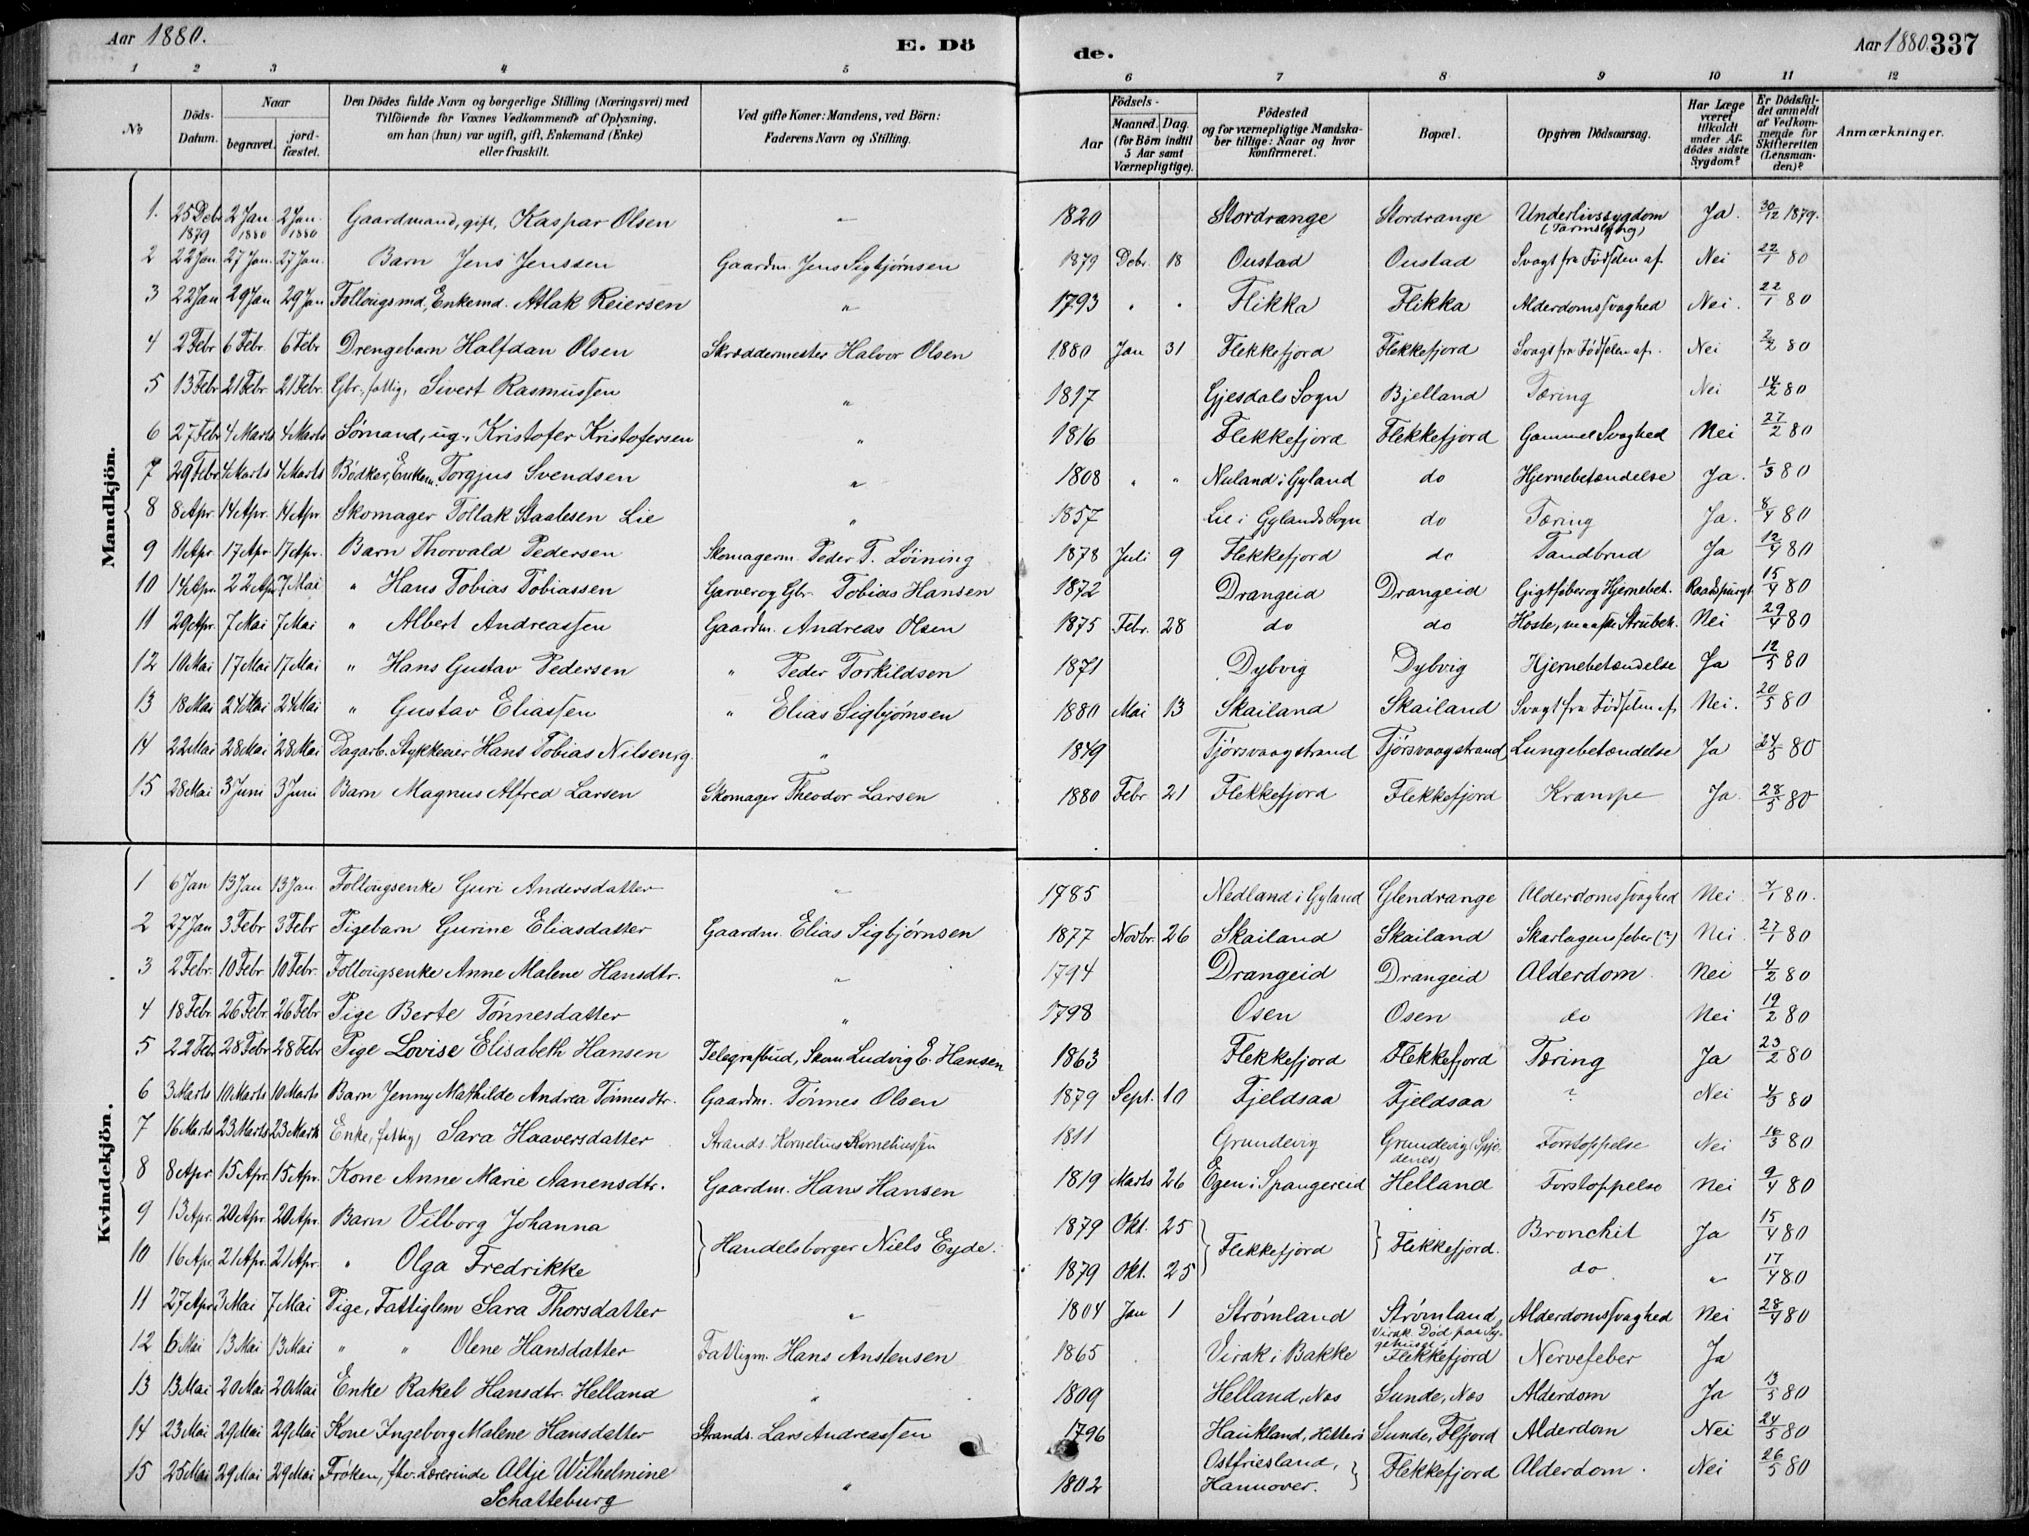 Aar 1880. E. Dö de. Aar 1880. 337
1 2 3 4 5 6 7 8 9 10 11 12
No Döds-Datum. Naar begravet. jord-fæstet. Den Dödes fulde Navn og borgerlige Stilling (Næringsvei) med Tilföiende for Voxnes Vedkommende af Oplysning, om han (hun) var ugift, gift, Enkemand (Enke) eller fraskilt. Ved gifte Koner: Mandens, ved Börn: Faderens Navn og Stilling. Födsels- Aar Maaned. Dag. (for Börn indtil 5 Aar samt Værnepligtige). Födested og for værnepligtige Mandskaber tillige: Naar og hvor konfirmeret. Bopæl. Opgiven Dödsaarsag. Har Læge været tilkaldt under Afdödes sidste Sygdom? Er Dödsfaldet anmeldt af Vedkommende for Skifteretten (Lensmanden)? Anmærkninger.
Mandkjön.
1. 25 Debr 1879 2 Jan 1880 2 Jan. 1880 Gaardmand, gift, Kaspar Olsen — 1820 Stordrange Stordrange Underlivssygdom Ja. 30/12 1879.
2 22 Jan 27 Jan. 27 Jan. Barn Jens Jenssen Gaardm. Jens Sigbjørnsen 1879 Debr. 18 Oustad Oustad Svagt fra Fødselen af. Nei 22/1 80
3 22 Jan 29 Jan 29 Jan Follougsmd, Enkemd. Atlak Reiersen " 1793 " " Flikka Flikka Alderdomssvaghed Nei. 22/1 80
4 2 Febr 6 Febr. 6 Febr Drengebarn Halfdan Olsen Skræddermester Halvor Olsen 1880 Jan 31 Flekkefjord Flekkefjord Svagt fra Fødselen af. Nei 2/2 80
5 13 Febr 21 Febr. 21 Febr. Gbr. fattig, Sivert Rasmussen " 1817 Gjesdals Sogn Bjelland Tæring Nei 14/2 80
6 27 Febr 4 Marts 4 Marts Sømand, ug., Kristofer Kristofersen " 1816 Flekkefjord Flekkefjord Gammel Svaghed Nei 27/2 80
7 29 Febr 4 Marts 4 Marts Bødker, Enkem. Torgjus Svendsen " 1808 " " Nuland i Gyland do Hjernebetændelse Ja. 1/3 80
8 8 Apr. 14 Apr. 14 Apr Skomager Tollak Staalesen Lie " 1857 Lie i Gylands Sogn do Tæring Ja. 8/4 80
9 11 Apr 17 Apr. 17 Apr. Barn Thorvald Pedersen Skomagerm. Peder T. Løining 1878 Juli 9 Flekkefjord do Tandbrud Ja 12/4 80
10 14 Apr. 22 Apr 7 Mai " Hans Tobias Tobiassen Garver og Gbr. Tobias Hansen 1872 Drangeid Drangeid Gigtfeber og Hjernebet. Raadspurgt 15/4 80
11 29 Apr. 7 Mai 7 Mai " Albert Andreassen Gaardm. Andreas Olsen 1875 Febr. 28 do do Hoste, Strubeh. Nei 29/4 80
12 10 Mai 17 Mai 17 Mai " Hans Gustav Pedersen " Peder Torkildsen 1871 Dybvig Dybvig Hjernebetændelse Ja 12/5 80
13 18 Mai 24 Mai 24 Mai " Gustav Eliassen " Elias Sigbjørnsen 1880 Mai 13 Skailand Skailand Svagt fra Fødselen af Nei. 20/5 80
14 22 Mai 28 Mai 28 Mai Dagarb. Stykkeeier Hans Tobias Nilsen, g. " 1849 Tjørsvaagstrand Tjørsvaagstrand Lungebetændelse Ja 24/5 80
15 28 Mai 3 Juni 3 Juni Barn Magnus Alfred Larsen Skomager Theodor Larsen 1880 Febr 21 Flekkefjord Flekkefjord Krampe Ja. 28/5 80
Kvindekjön.
1 6 Jan 13 Jan 13 Jan. Follougsenke Guri Andersdatter " 1785 Nedland i Gyland Glendrange Alderdomssvaghed Nei. 7/1 80.
2 27 Jan 3 Febr 3 Febr Pigebarn Gurine Eliasdatter Gaardm. Elias Sigbjørnsen 1877 Novbr. 26 Skailand Skailand Skarlagensfeber (?) Nei. 27/1 80
3 2 Febr. 10 Febr 10 Febr. Follougsenke Anne Malene Hansdtr. " 1794 Drangeid Drangeid Alderdom Nei 4/2 80
4 18 Febr. 26 Febr 26 Febr Pige Berte Tønnesdatter " 1798 Osen Osen do Nei 19/2 80
5 22 Feb 28 Febr 28 Febr Pige Lovise Elisabeth Hansen Telegrafbud, Skom Ludvig E. Hansen 1863 Flekkefjord Flekkefjord Tæring Ja 23/2 80
6 3 Marts 10 Marts 10 Marts Barn Jenny Mathilde Andrea Tønnesdtr. Gaardm. Tønnes Olsen 1879 Sept. 10 Fjeldsaa Fjeldsaa ? Nei 4/3 80
7 16 Marts 23 Marts 23 Marts Enke, fattig, Sara Haaversdatter Strands. Kornelius Korneliussen 1811 Grundevig Grundevig Forstoppelse Nei 16/3 80
8 8 Apr 15 Apr. 15 Apr. Kone Anne Marie Aanensdtr. Gaardm. Hans Hansen 1819 Marts 26 Egen i Spangereid Helland Forstoppelse Nei 9/4 80
9 13 Apr. 20 Apr. 20 Apr. Barn Vilborg Johanna } Handelsborger Niels Eyde. 1879 Okt. 25 } Flekkefjord } Flekkefjord. Bronchit Ja 15/4 80
10 16 Apr 21 Apr. 21 Apr. " Olga Fredrikke 1879 Okt. 25 do " 17/4 80
11 27 Apr. 3 Mai 7 Mai Pige, Fattiglem Sara Thorsdatter " 1804 Jan 1 Strømland Strømland Alderdomssvaghed Nei 28/4 80
12 6 Mai 13 Mai 13 Mai " " Olene Hansdatter Fattigm. Hans Anstensen 1865 Virak i Bakke Virak. Død paa Sygehuset i Flekkefjord Nervefeber Ja
13 13 Mai 20 Mai 20 Mai Enke Rakel Hansdtr. Helland " 1809 Helland, Nes Sunde, Nes Alderdom Ja 13/5 80
14 23 Mai 29 Mai 29 Mai Kone Ingeborg Malene Hansdatter Strands. Lars Andreassen 1796 Haukland, Hitterø Sunde, Flfjord Alderdom Nei 24/5 80
15 25 Mai 29 Mai 29 Mai Frøken, fhv. Lærerinde Altje Wilhelmine Schatteburg " 1802 Ostfriesland, Hannover. } Flekkefjord Alderdom. Nei 26/5 80